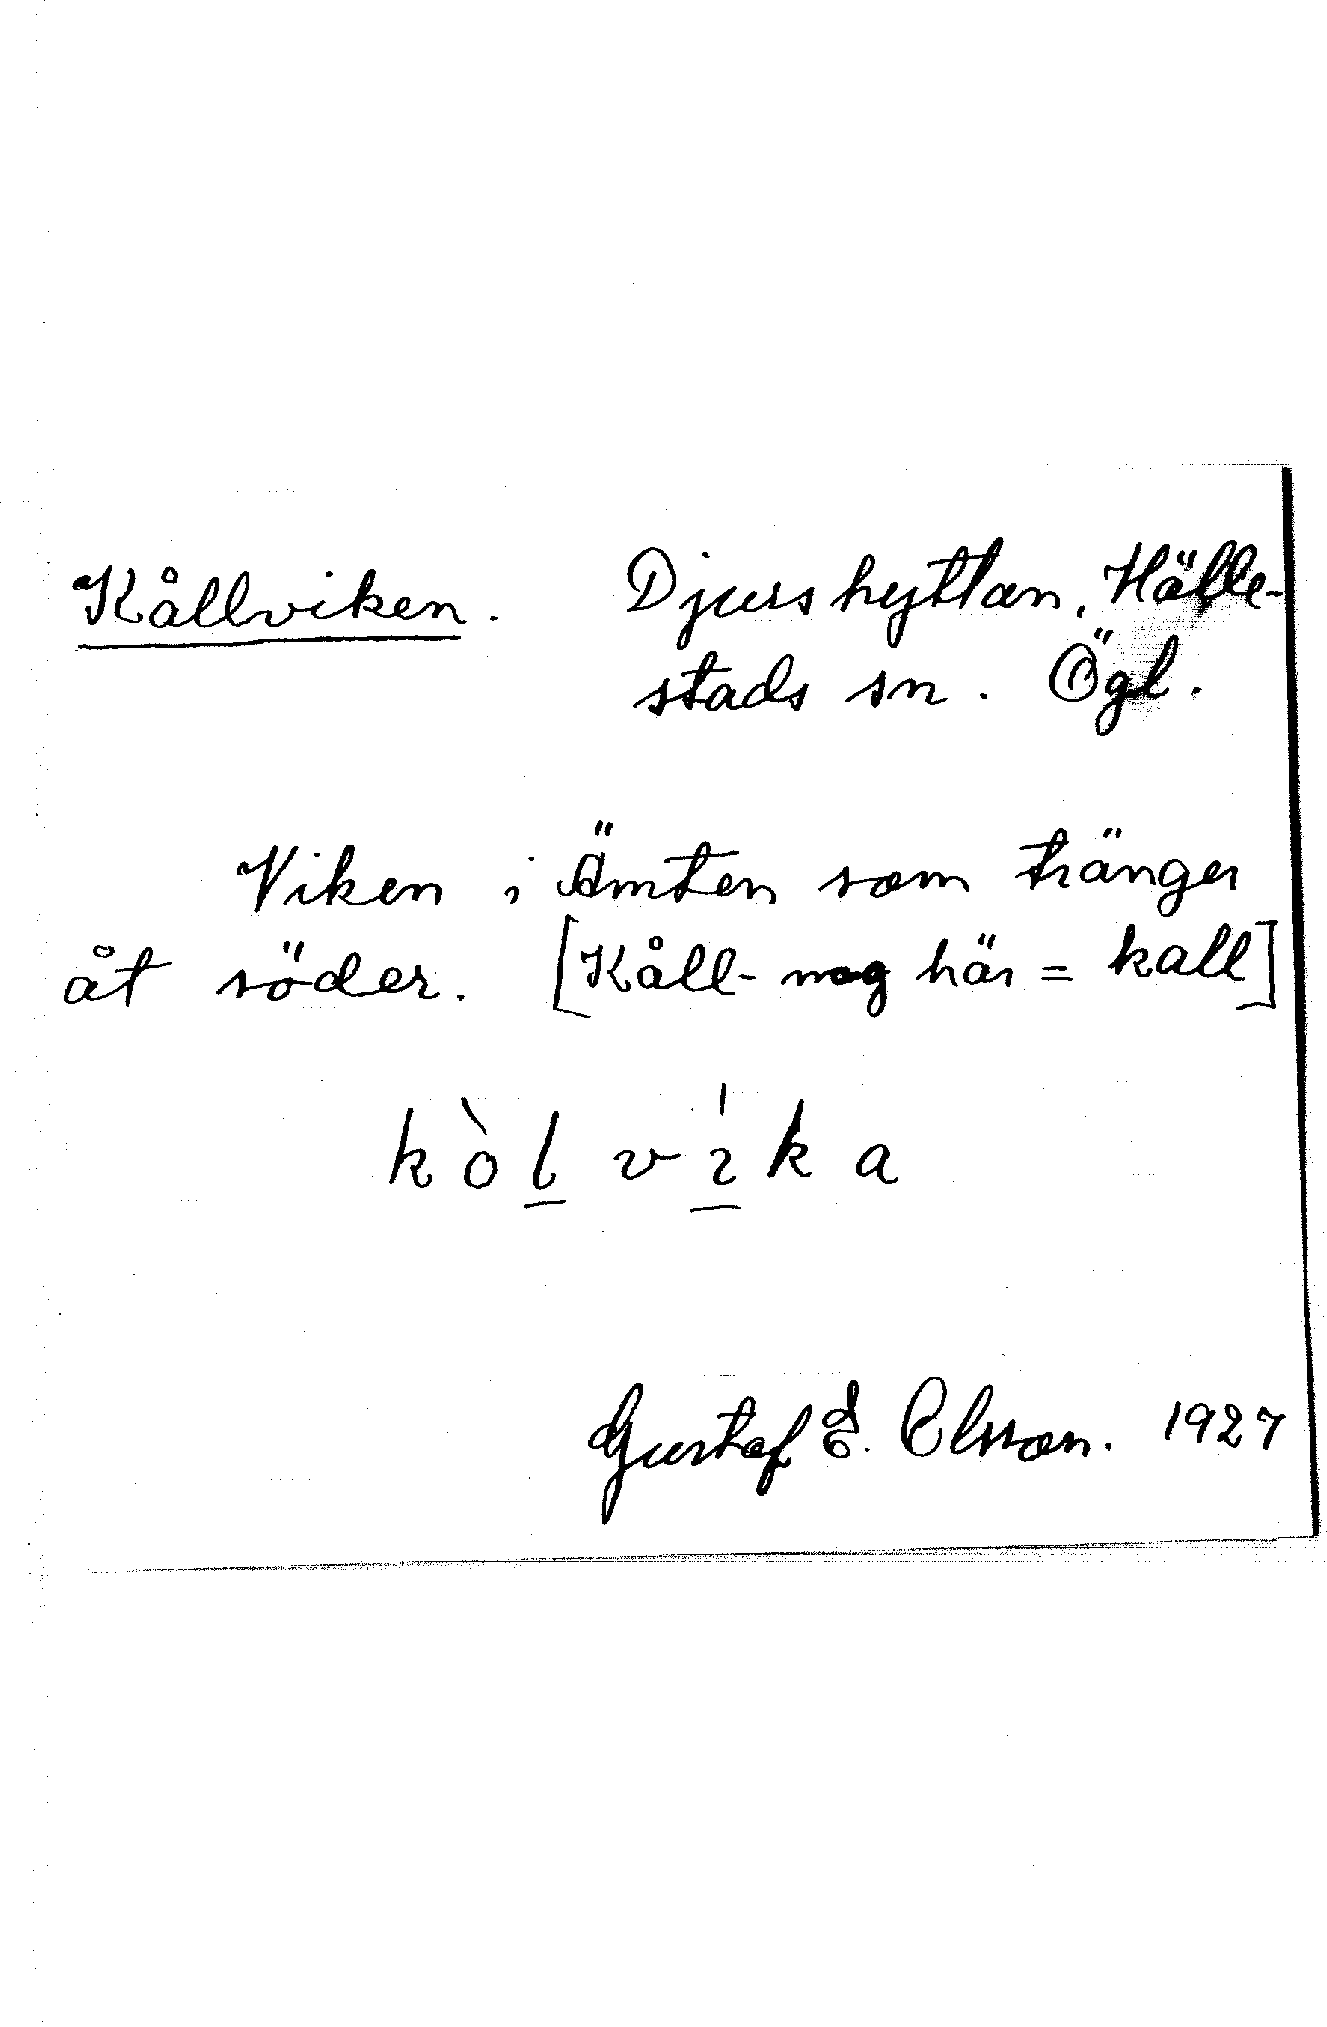 Kållviken. Djurshyttan, Hälle-
stads sn. Ögl.
Viken i Ämten som tränger
åt söder. [Kåll- nog här = kall]
kòl̲vı̲̍ka
Gustaf E. Olsson. 1927